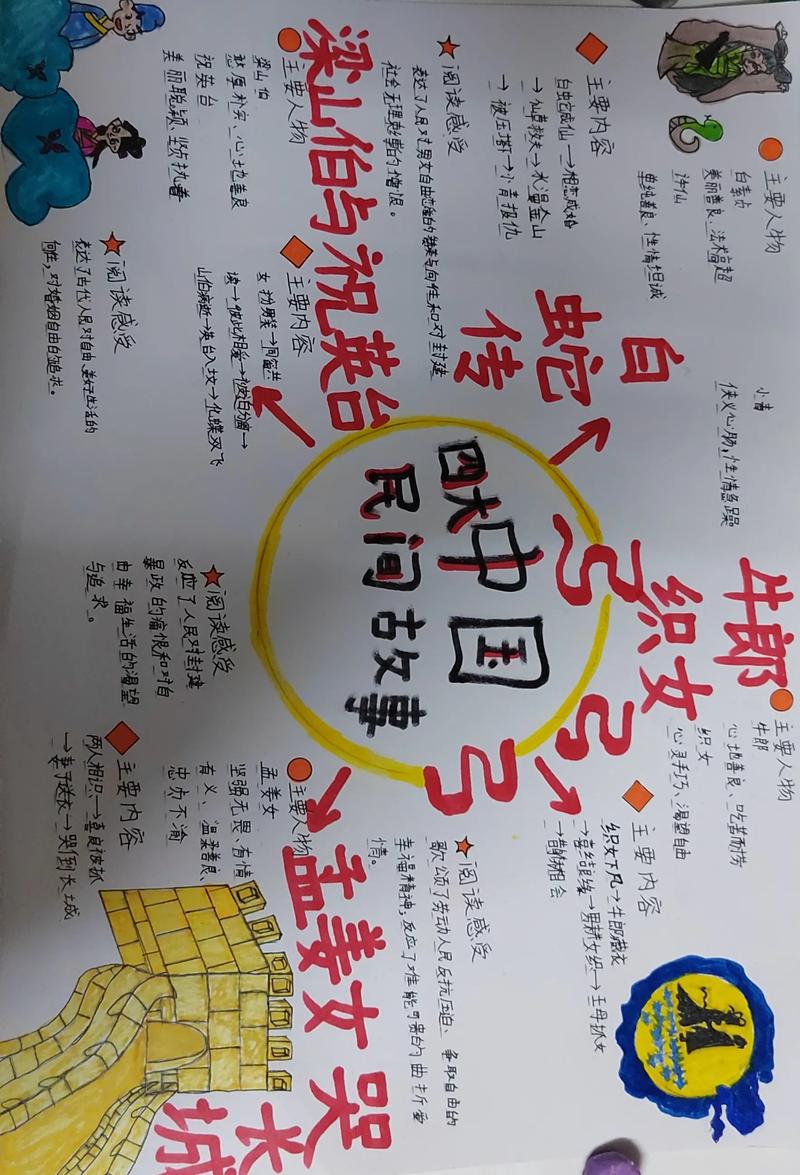 四大中国
民间故事
白
蛇
传
主要人物
白素贞
美丽善良、法术高超
许仙
单纯善良、性情坦诚
小青
侠义心肠,性情急躁
主要内容
白蛇成仙→相恋成婚
→仙草救夫→水漫金山
→被压塔→小青报仇
阅读感受
表达了人民对男女自由恋爱的赞美与向往和对封建
社会无理束缚的憎恨。
牛郎
织女
主要人物
牛郎
心地善良、吃苦耐劳
织女
心灵手巧、渴望自由
主要内容
织女下凡→牛郎藏衣
→喜结良缘→男耕女织→王母抓女
→鹊桥相会
阅读感受
歌颂了劳动人民反抗压迫、争取自由的
幸福精神,反应了难能可贵的曲折爱
情。
梁山伯与祝英台
主要人物
梁山伯
憨厚朴实、心地善良
祝英台
美丽聪颖、坚贞执着
主要内容
女扮男装→同窗共
读→彼此相爱→被迫分离→
山伯病逝→英台入坟→化蝶双飞
阅读感受
表达了古代人民对自由、美好生活的
向往,对婚姻自由的追求。
孟姜女哭
长
城
主要人物
孟姜女
坚强无畏、有情
有义、温柔善良、
忠贞不渝
主要内容
两人相识→喜良被抓
→妻子送衣→哭倒长城
阅读感受
反应了人民对封建
暴政的痛恨和对自
由幸福生活的渴望
与追求。